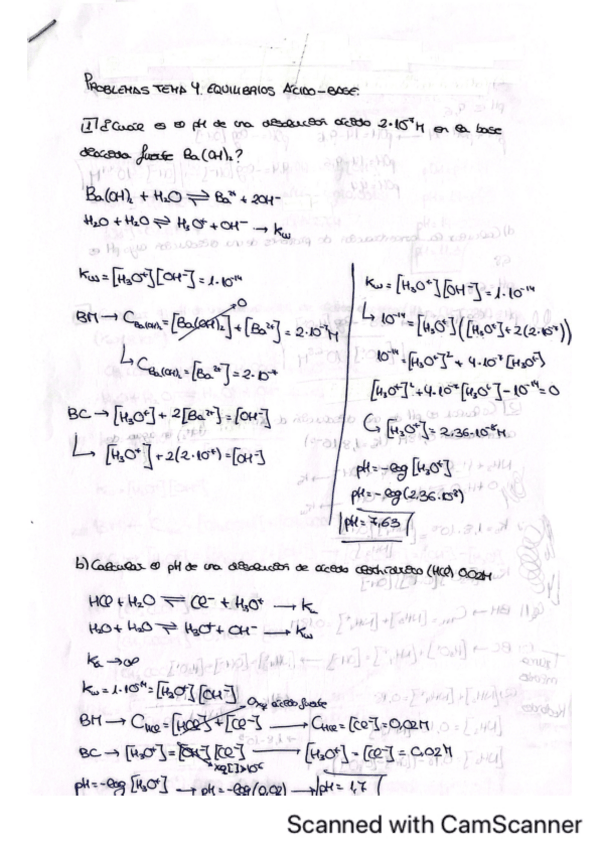 PROBLEMAS TEMA 4. EQUILIBRIOS ÁCIDO-BASE.
1] ¿Cuál es el pH de una disolución 2·10⁻⁷M en la base
fuerte Ba(OH)₂?
Ba(OH)₂ + H₂O ⇌ Ba²⁺ + 2OH⁻
H₂O + H₂O ⇌ H₃O⁺ + OH⁻ → Kw
Kw = [H₃O⁺][OH⁻] = 1·10⁻¹⁴
0
BM → C Ba(OH)₂ = [Ba(OH)₂] + [Ba²⁺] = 2·10⁻⁷M
↳ C Ba(OH)₂ = [Ba²⁺] = 2·10⁻⁷
BC → [H₃O⁺] + 2[Ba²⁺] = [OH⁻]
↳ [H₃O⁺] + 2(2·10⁻⁷) = [OH⁻]
Kw = [H₃O⁺][OH⁻] = 1·10⁻¹⁴
↳ 10⁻¹⁴ = [H₃O⁺]([H₃O⁺] + 2(2·10⁻⁷))
10⁻¹⁴ = [H₃O⁺]² + 4·10⁻⁷[H₃O⁺]
[H₃O⁺]² + 4·10⁻⁷[H₃O⁺] - 10⁻¹⁴ = 0
↳ [H₃O⁺] = 2.36·10⁻⁸M
pH = -log [H₃O⁺]
pH = -log (2.36·10⁻⁸)
pH = 7,63
b) Calcular el pH de una disolución de ácido clorhídrico (HCl) 0.02M
HCl + H₂O ⇌ Cl⁻ + H₃O⁺ → Ka
H₂O + H₂O ⇌ H₃O⁺ + OH⁻ → Kw
Ka → ∞
Kw = 1·10⁻¹⁴ = [H₃O⁺][OH⁻]
0 xq ácido fuerte
BM → C HCl = [HCl] + [Cl⁻] → C HCl = [Cl⁻] = 0,02M
BC → [H₃O⁺] = [OH⁻][Cl⁻] → [H₃O⁺] = [Cl⁻] = 0,02M
pH = -log [H₃O⁺] → pH = -log (0,02) → pH = 1,7
Scanned with CamScanner